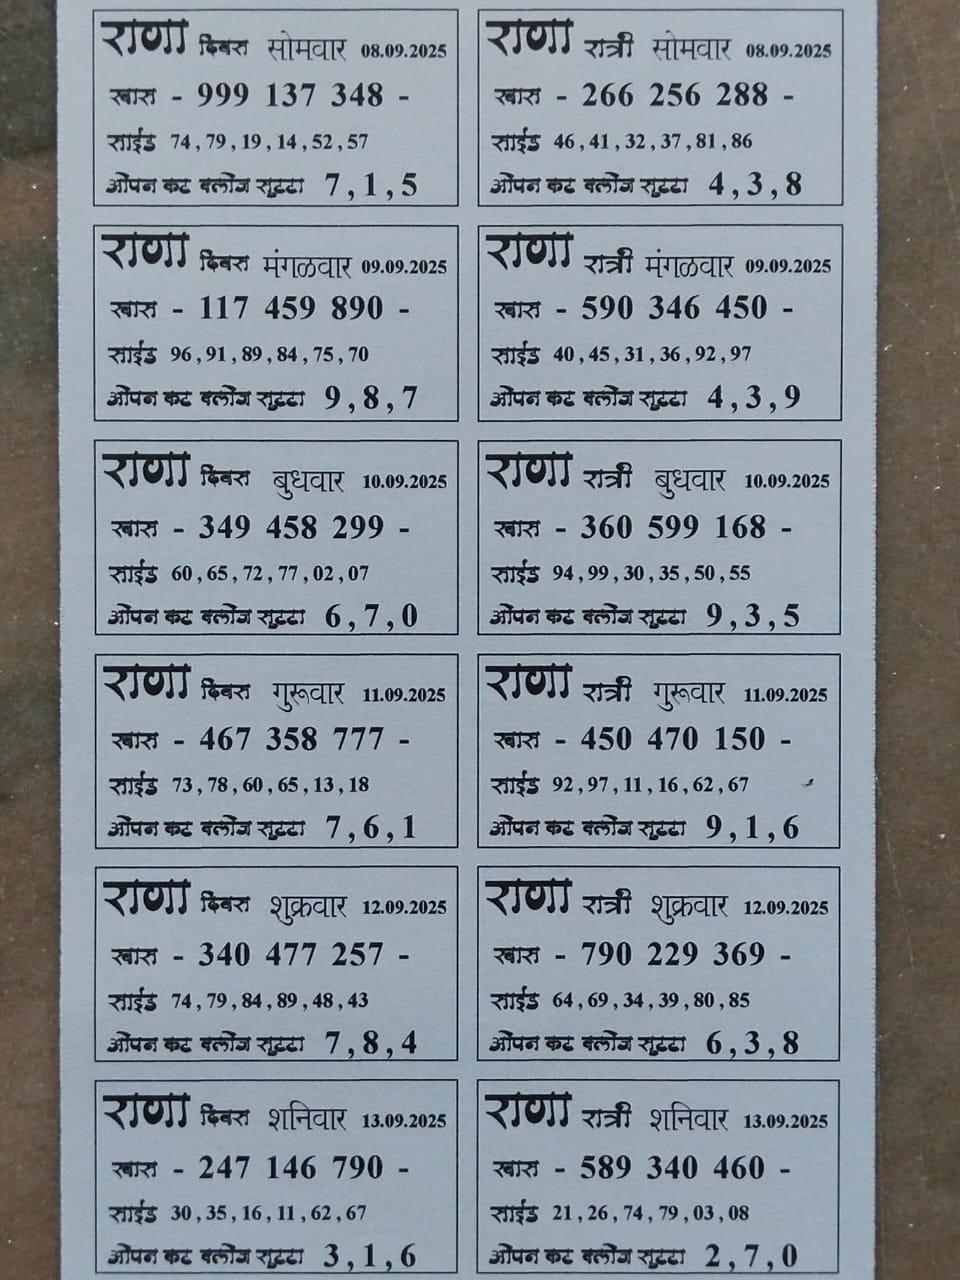 राणा दिवस सोमवार 08.09.2025
खास - 999 137 348 -
साईड 74, 79, 19, 14, 52, 57
ओपन कट क्लोज सुट्टा 7, 1, 5
राणा रात्री सोमवार 08.09.2025
खास - 266 256 288 -
साईड 46, 41, 32, 37, 81, 86
ओपन कट क्लोज सुट्टा 4, 3, 8
राणा दिवस मंगळवार 09.09.2025
खास - 117 459 890 -
साईड 96, 91, 89, 84, 75, 70
ओपन कट क्लोज सुट्टा 9, 8, 7
राणा रात्री मंगळवार 09.09.2025
खास - 590 346 450 -
साईड 40, 45, 31, 36, 92, 97
ओपन कट क्लोज सुट्टा 4, 3, 9
राणा दिवस बुधवार 10.09.2025
खास - 349 458 299 -
साईड 60, 65, 72, 77, 02, 07
ओपन कट क्लोज सुट्टा 6, 7, 0
राणा रात्री बुधवार 10.09.2025
खास - 360 599 168 -
साईड 94, 99, 30, 35, 50, 55
ओपन कट क्लोज सुट्टा 9, 3, 5
राणा दिवस गुरूवार 11.09.2025
खास - 467 358 777 -
साईड 73, 78, 60, 65, 13, 18
ओपन कट क्लोज सुट्टा 7, 6, 1
राणा रात्री गुरूवार 11.09.2025
खास - 450 470 150 -
साईड 92, 97, 11, 16, 62, 67
ओपन कट क्लोज सुट्टा 9, 1, 6
राणा दिवस शुक्रवार 12.09.2025
खास - 340 477 257 -
साईड 74, 79, 84, 89, 48, 43
ओपन कट क्लोज सुट्टा 7, 8, 4
राणा रात्री शुक्रवार 12.09.2025
खास - 790 229 369 -
साईड 64, 69, 34, 39, 80, 85
ओपन कट क्लोज सुट्टा 6, 3, 8
राणा दिवस शनिवार 13.09.2025
खास - 247 146 790 -
साईड 30, 35, 16, 11, 62, 67
ओपन कट क्लोज सुट्टा 3, 1, 6
राणा रात्री शनिवार 13.09.2025
खास - 589 340 460 -
साईड 21, 26, 74, 79, 03, 08
ओपन कट क्लोज सुट्टा 2, 7, 0